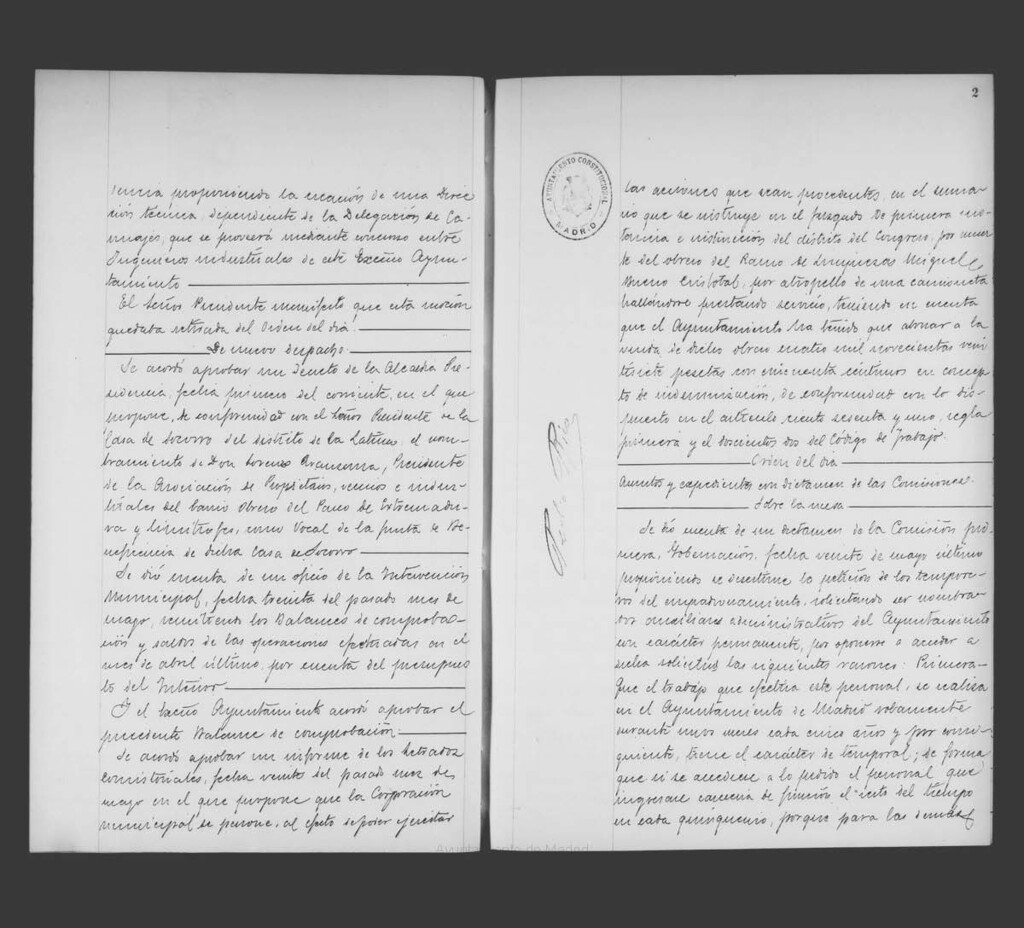 dencia proponiendo la creación de una Direc
ción técnica, dependiente de la Delegación de Ca-
rruajes, que se proveerá mediante concurso entre
Ingenieros industriales de este Excmo Ayun-
tamiento
El Señor Presidente manifestó que esta moción
quedaba retirada del Orden del día.
De nuevo despacho.
Se acordó aprobar un decreto de la Alcaldía Pre-
sidencia, fecha primero del corriente, en el que
propone, de conformidad con el Señor Presidente de la
Casa de Socorro del distrito de la Latina, el nom-
bramiento de Don Lorenzo Presidente
de la Asociación de Propietarios, vecinos e indus-
triales del barrio Obrero del Paseo de Extremadu-
ra y limítrofes, como Vocal de la Junta de Be-
neficencia de dicha Casa de Socorro
Se dió cuenta de un oficio de la Intervención
Municipal, fecha treinta del pasado mes de
mayo, remitiendo los Balances de comproba-
ción y saldos de las operaciones efectuadas en el
mes de abril último, por cuenta del presupues
to del Interior
Y el Excmo Ayuntamiento acordó aprobar el
precedente Balance de comprobación.
Se acordó aprobar un informe de los Letrados
Consistoriales, fecha veinte del pasado mes de
mayo en el que propone que la Corporación
municipal se persone, al efecto de poder ejercitar
2
AYUNTAMIENTO CONSTITUCIONAL
MADRID
las acciones que sean procedentes, en el suma-
rio que se instruye en el Juzgado de primera ins-
tancia e instrucción del distrito del Congreso, por muer
te del obrero del Ramo de Limpiezas Miguel
Bueno Cristobal, por atropello de una camioneta
hallándose prestando servicio, teniendo en cuenta
que el Ayuntamiento ha tenido que abonar a la
viuda de dicho obrero cuatro mil novecientas vein
tisiete pesetas con cincuenta céntimos en concep
to de indemnización, de conformidad con lo dis-
puesto en el artículo ciento sesenta y uno, regla
primera y el doscientos dos del Código de Trabajo.
Orden del día
Asuntos y expedientes con dictamen de las Comisiones.
Sobre la mesa
Se dió cuenta de un dictamen de la Comisión pri-
mera, Gobernación, fecha veinte de mayo último
proponiendo se desestime la petición de los tempore-
ros del empadronamiento, solicitando ser nombra-
dos auxiliares administrativos del Ayuntamiento
con carácter permanente, por oponerse a acceder a
dicha solicitud las siguientes razones: Primera-
Que el trabajo que efectúa este personal, se realiza
en el Ayuntamiento de Madrid solamente
durante unos meses cada cinco años y por consi-
guiente, tiene el carácter de temporal; de forma
que si se accediese a lo pedido el personal que
ingresare carecería de función el resto del tiempo
en cada quinquenio, porque para las demás
Ayuntamiento de Madrid